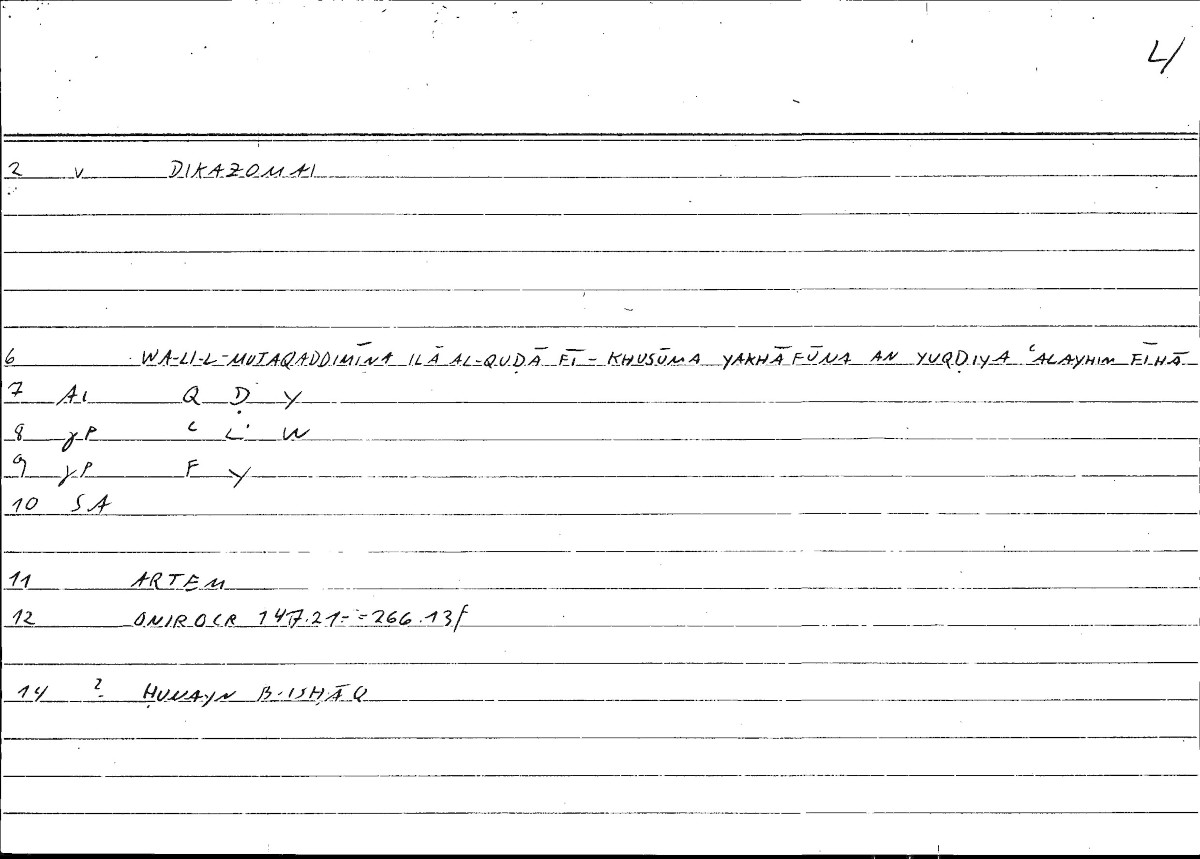 4
2 v DIKAZOMAI
6 WA-LI-L-MUTAQADDIMĪNA ILĀ AL-QUḌĀ FĪ-KHUSŪMA YAKHĀFŪNA AN YUQḌIYA ʿALAYHIM FĪHĀ
7 A1 Q Ḍ Y
8 γP ʿ L W
9 γP F Y
10 SA
11 ARTEM
12 ONIROCR 147.21-=266.13f
14 ? ḤUNAYN B-ISḤĀQ